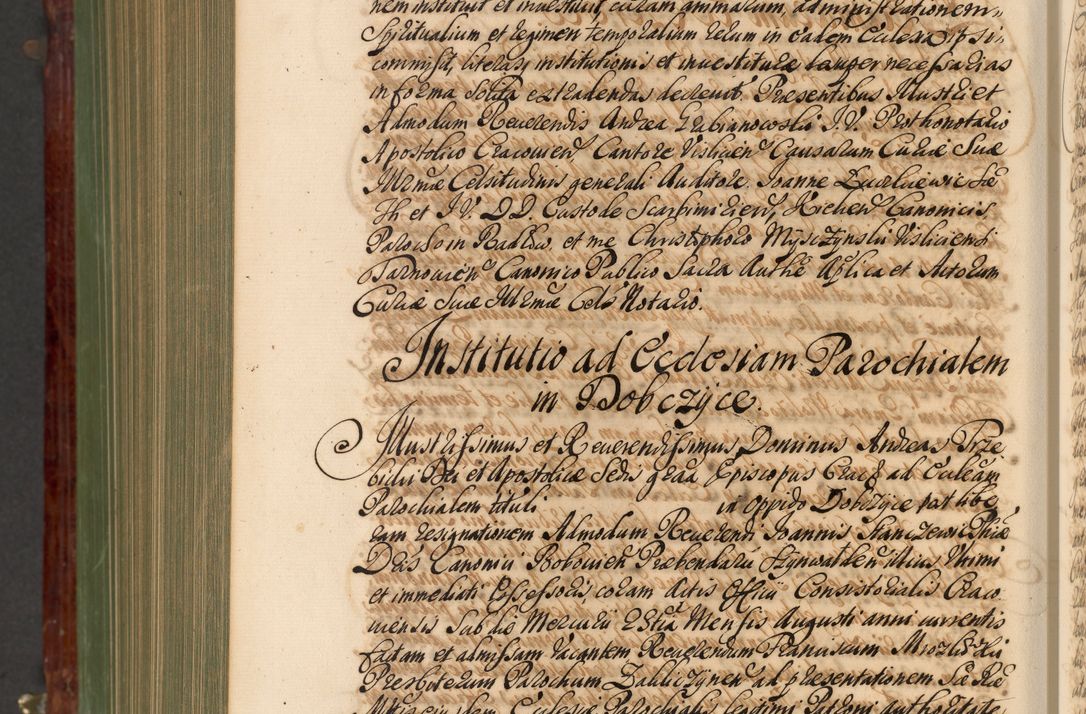 nem instituit et investiuit, curam animarum, administrationem
Spiritualium et regimen temporalium rerum in eadem Ecclesia ipsi
commisit, literas institutionis et inuestituræ super necessarias
in forma solita extradendas decreuit. Præsentibus Illustri et
Admodum Reuerendis Andrea J.V. Prothonotario
Apostolico Cracouien Cantore Vislicien Causarum Curiæ Suæ
Illrmæ Celsitudinis generali Auditore. Joanne
Th et J.V. DD. Custode Scarbimirien, Kielcen Canonicis,
Parocho in Radłow, et me Christophoro Mysczynski Visliciensi
Tarnouien Canonico Publico Sacra Authe Aplica et Actorum
Curiæ Suæ Illrmæ Cels Notario.
Institutio ad Ecclesiam Parochialem
in Dobczyce.
Illustrissimus et Reuerendissimus Dominus Andreas Trze
bicki Dei et Apostolicæ Sedis graa Episcopus Crac ad Eccleam
Parochialem tituli in oppido Dobczyce post libe
ram resignationem Admodum Reuerendi Joannis Phiæ
Dris Canonici Bobouien Præbendarii illius, Vltimi
et immediati Possessoris, coram Actis Officii Consistorialis Craco
uiensis sub die Mercurii Mensis Augusti anni currentis
factam et admissam vacantem Reuerendum Franciscum
Presbiterum Parochum ad præsentationem Sæ Ræ
Mtis eiusdem Ecclesiæ Parochialis legitimi Patroni authoritate